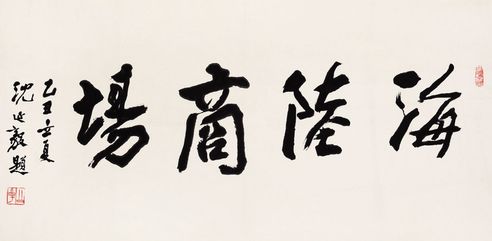 海陸商場
乙丑夏
沈延毅題